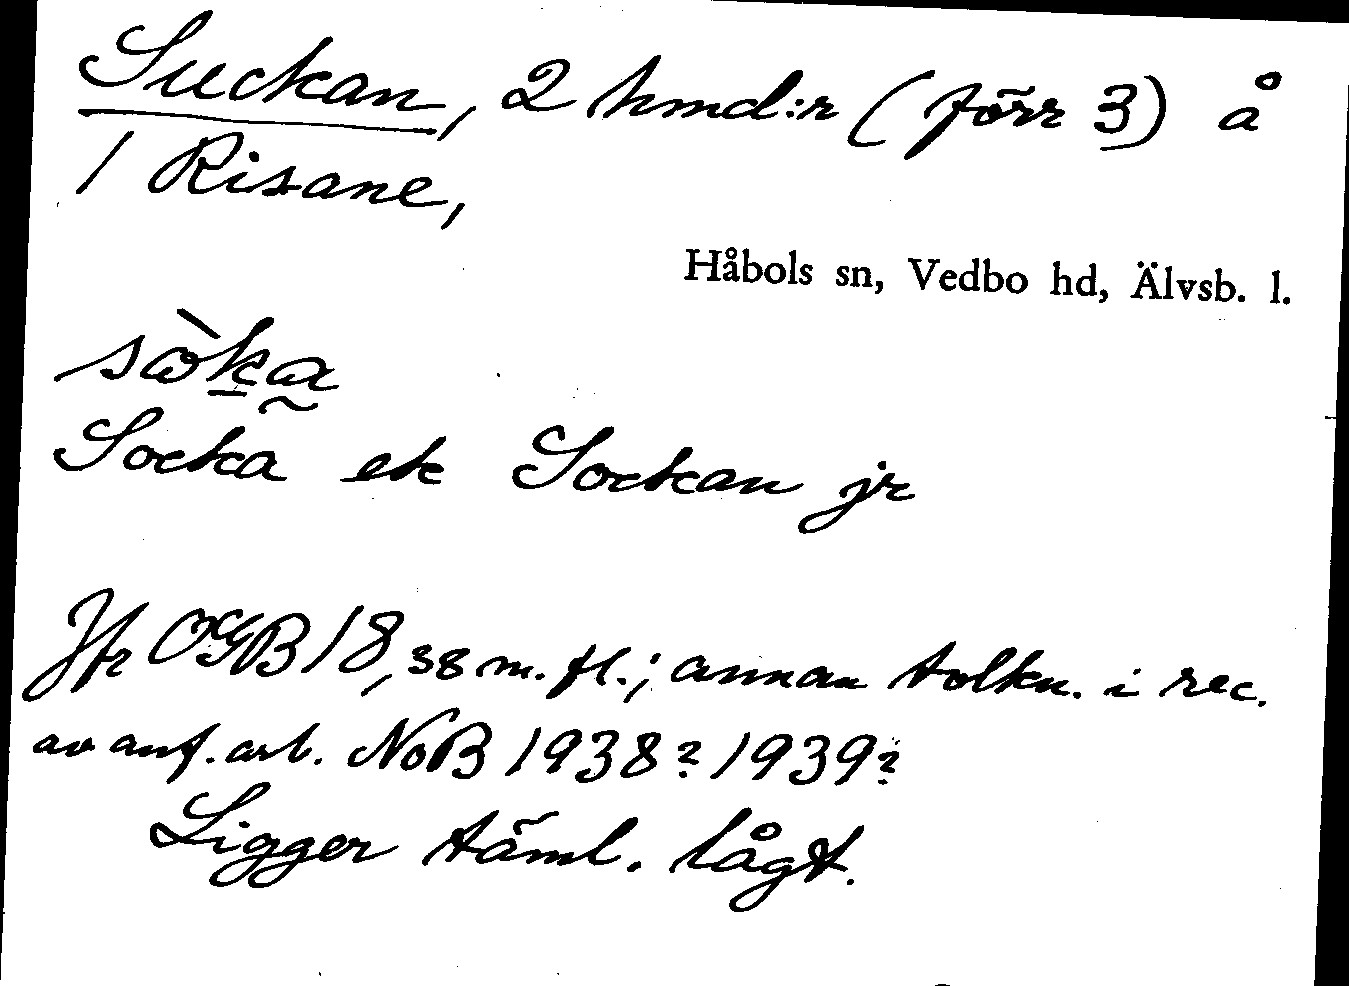 Suckan, 2 hmd:r (förr 3) å
1 Risane,
Håbols sn, Vedbo hd, Älvsb. l.
sòka
Socka ek Sockan jr
Jfr OGB 18, 38 m. fl.; annan tolkn. i rec.
av anf. arb. NoB 1938? 1939?
Ligger täml. lågt.